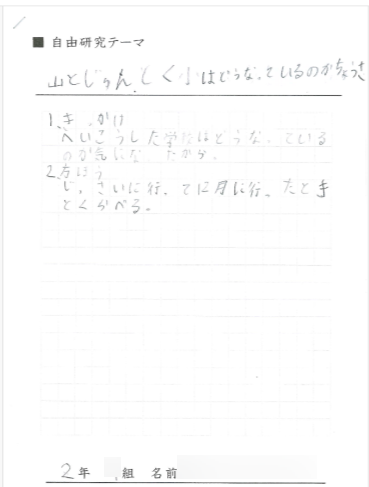 ■ 自由研究テーマ
山とじゅんとく小はどうなっているのかちょうさ
1.きっかけ
へいこうした学校はどうなっている
のか気になったから。
2.方ほう
じっさいに行って12月に行ったとき
とくらべる。
2年 組 名前